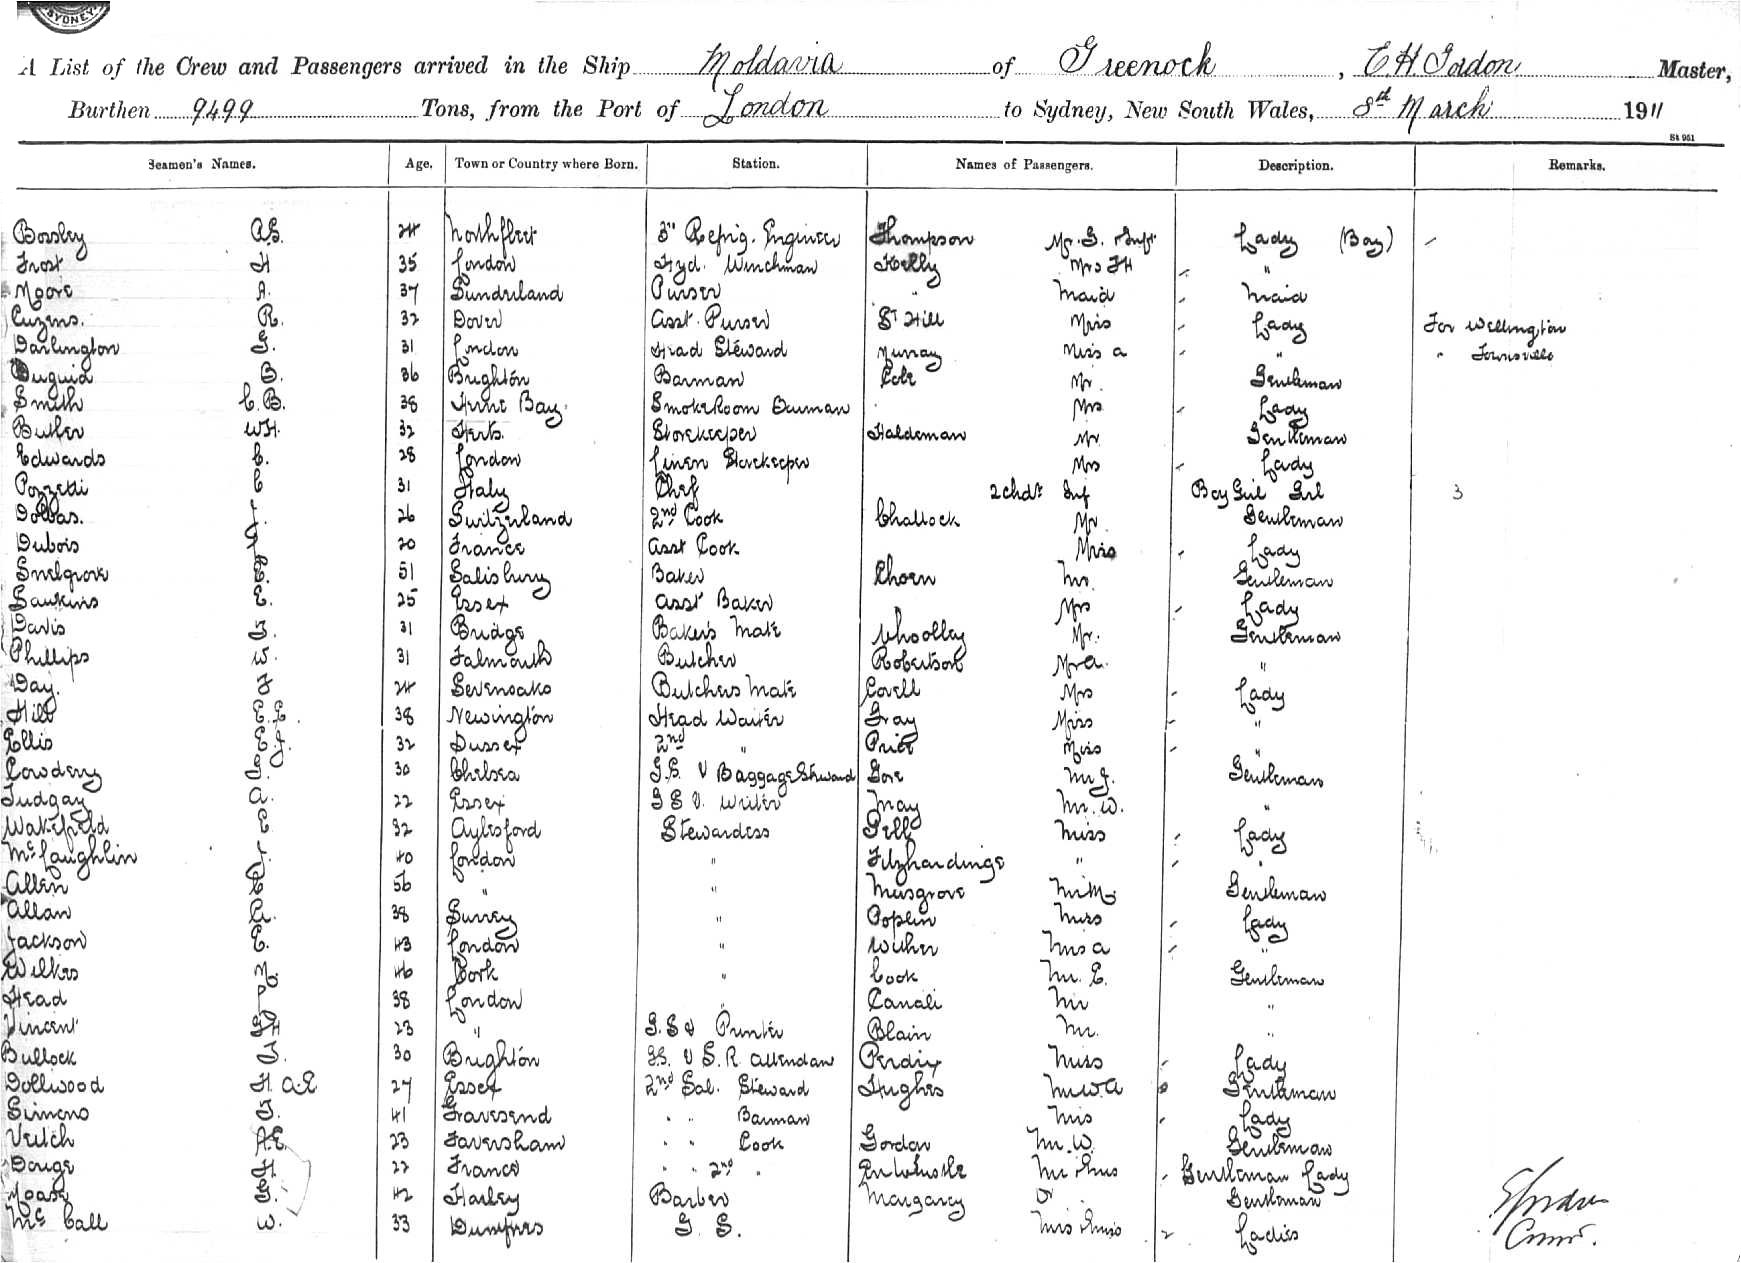 SYDNEY
A List of the Crew and Passengers arrived in the Ship Moldavia of Greenock, E H Gordon Master,
Burthen 9499 Tons, from the Port of London to Sydney, New South Wales, 8th March 1911
St 951
Seamen's Names. Age. Town or Country where Born. Station. Names of Passengers. Description. Remarks.
Bossley 24 Northfleet 3rd Refrig. Engineer Thompson Lady (Boy)
Frost H 35 London Hyd. Winchman Kelly Mrs FH "
Moore A. 37 Sunderland Purser " Maid Maid
Cuzens. R. 32 Dover Asst. Purser St Hill Miss Lady For Wellington
Darlington G. 31 London Head Steward Murray Miss A " " Townsville
Duguid B. 36 Brighton Barman Cole Mr. Gentleman
Smith C.B. 38 Herne Bay. Smoke Room Barman Mrs Lady
Butler WH. 32 Herts. Storekeeper Haldeman Mr Gentleman
Edwards C. 28 London Linen Storekeeper Mrs Lady
Pozzetti C 31 Italy Chef 2 chdn Inf Boy Girl Girl 3
J. 26 Switzerland 2nd Cook Challock Mr. Gentleman
Dubois 20 France Asst Cook Miss Lady
Snelgrove E. 51 Salisbury Baker Chorn Mr. Gentleman
Sawkins E. 25 Essex Asst Baker Mrs Lady
Davis G. 31 Bridge Baker's Mate Whoolley Mr. Gentleman
Phillips W. 31 Falmouth Butcher Robertson Mr A. "
Day. F 24 Sevenoaks Butchers Mate Covell Mrs Lady
Hill E.E. 38 Newington Head Waiter Gray Miss "
Ellis E.J. 32 Sussex 2nd " Price Miss "
Cowdery G. 30 Chelsea G.S. & Baggage Steward Gore Mr J. Gentleman
Judgay A. 22 Essex G S &. Writer May Mr. W. "
Wakefield E 32 Aylesford Stewardess Pell Miss Lady
McLaughlin J. 40 London " Fitzhardinge " "
Allen E 56 " " Musgrove Mr M. Gentleman
Allan A. 38 Surrey " Poplin Miss Lady
Jackson E. 43 London " Wilher Miss A "
Wilkes M. 46 York " Cook Mr. E. Gentleman
Head P 38 London " Canali Mr "
Vincent 23 " G.S & Printer Blain Mr. "
Bullock G. 30 Brighton GS. & S.R. Attendan Perdix Miss Lady
Dollwood H. A.E 27 Essex 2nd Sal. Steward Hughes Mr W.A Gentleman
Simens G. 41 Gravesend " " Barman Miss Lady
Veitch A.E. 23 Faversham " " Cook Gordon Mr. W. Gentleman
Douge H 22 France " " 2nd " Entwistle Mr & Mrs Gentleman Lady
Moase G. 42 Harley Barber Margarey Dr. Gentleman
McCall W. 33 Dumfries G. S. Miss & Miss Ladies
EGordon
Comr.